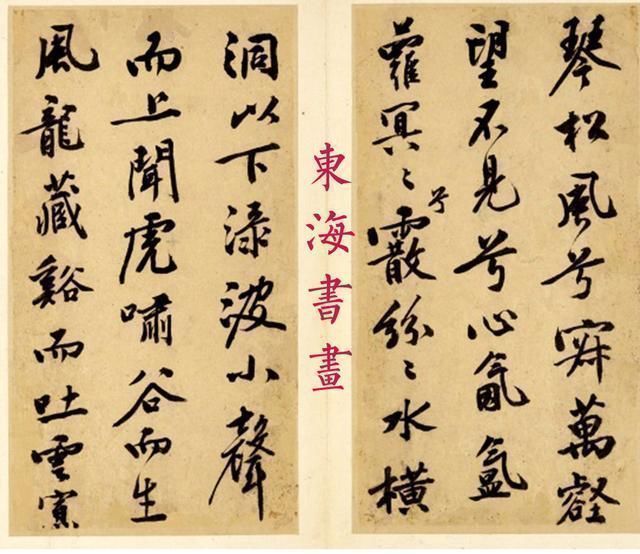 琴松風兮寂萬壑
望不見兮心氤氳
蘿冥〻兮霰紛〻水橫
東海書畫
洞以下淥波小聲
而上聞虎嘯谷而生
風龍藏谿而吐雲寡